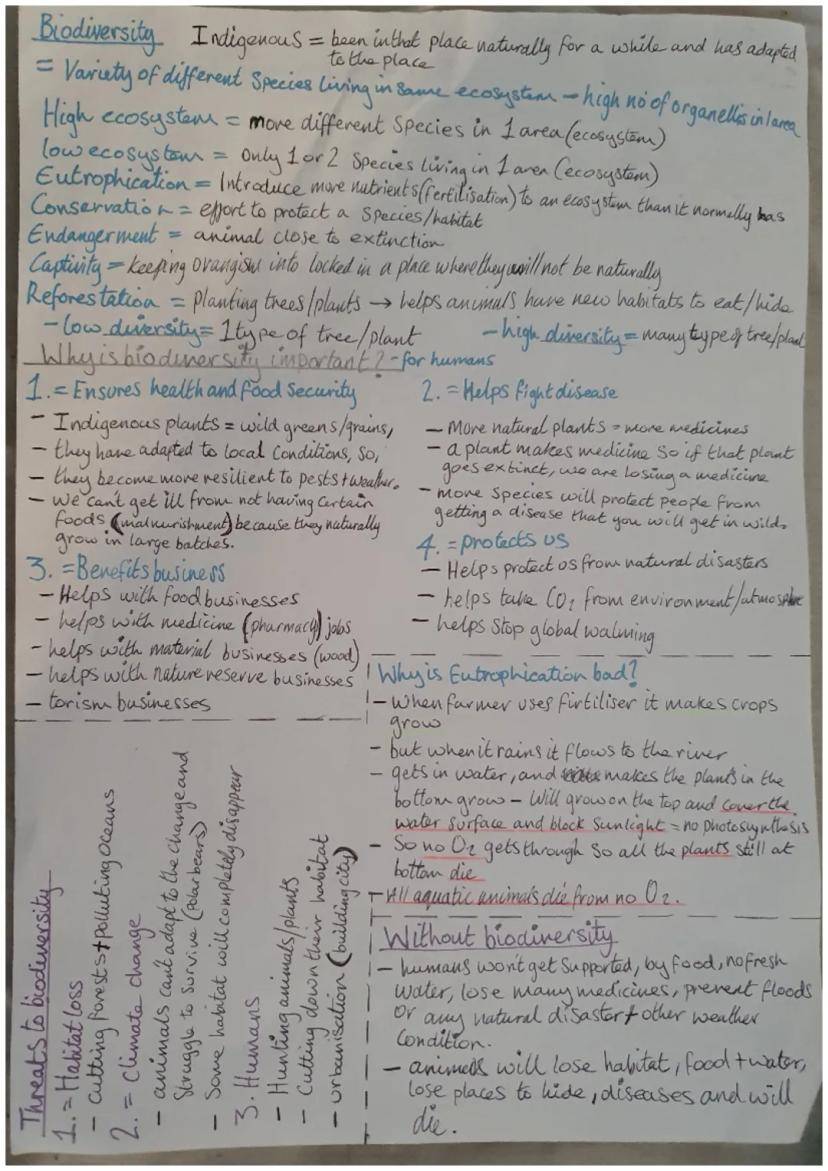 Biodiversity
Indigenous = been in that place naturally for a while and has adapted
to the place
= Variety of different Species living in same ecosystem - high no of organellis in 1 area
High ecosystem = more different Species in 1 area (ecosystem)
low ecosystem = only 1 or 2 Species living in 1 area (ecosystem)
Eutrophication = Introduce more nutrients (fertilisation) to an ecosystem than it normally has
Conservation = effort to protect a Species/habitat
Endangerment = animal close to extinction
Captivity = keeping orangism into locked in a place where they will not be naturally
Reforestation = planting trees/plants → helps animals have new habitats to eat/hide
- low diversity = 1 type of tree/plant - high diversity = many type of tree/plant
Why is biodiversity important? - for humans
1. = Ensures health and food security
- Indigenous plants = wild greens/grains,
- they have adapted to local conditions, so,
- they become more resilient to pests + weather.
- we can't get ill from not having certain
foods (malnurishment) because they naturally
grow in large batches.
2. = Helps fight disease
- More natural plants = more medicines
- a plant makes medicine so if that plant
goes extinct, we are losing a medicine
- more species will protect people from
getting a disease that you will get in wild.
3. = Benefits business
- Helps with food businesses
- helps with medicine (pharmacy) jobs
- helps with material businesses (wood)
- helps with nature reserve businesses
- torism businesses
4. = protects us
- Helps protect us from natural disasters
- helps take CO2 from environment/atmosphre
- helps stop global walming
Why is Eutrophication bad?
- when farmer uses firtiliser it makes crops
grow
- but when it rains it flows to the river
- gets in water, and makes the plants in the
bottom grow - Will grow on the top and cover the
water surface and block sunlight = no photosynthesis
- So no O2 gets through so all the plants still at
bottom die
- All aquatic animals die from no O2.
Without biodiversity
- humans won't get supported, by food, no fresh
water, lose many medicines, prevent floods
or any natural disaster + other weather
condition.
- animals will lose habitat, food + water,
lose places to hide, diseases and will
die.
Threats to biodiversity
1. = Habitat loss
- cutting forests + polluting oceans
2. = climate change
- animals can't adapt to the change and
struggle to survive (Polar bears)
- Some habitat will completely disappear
3. Humans
- Hunting animals/plants
- Cutting down their habitat
- urbanisation (building city)